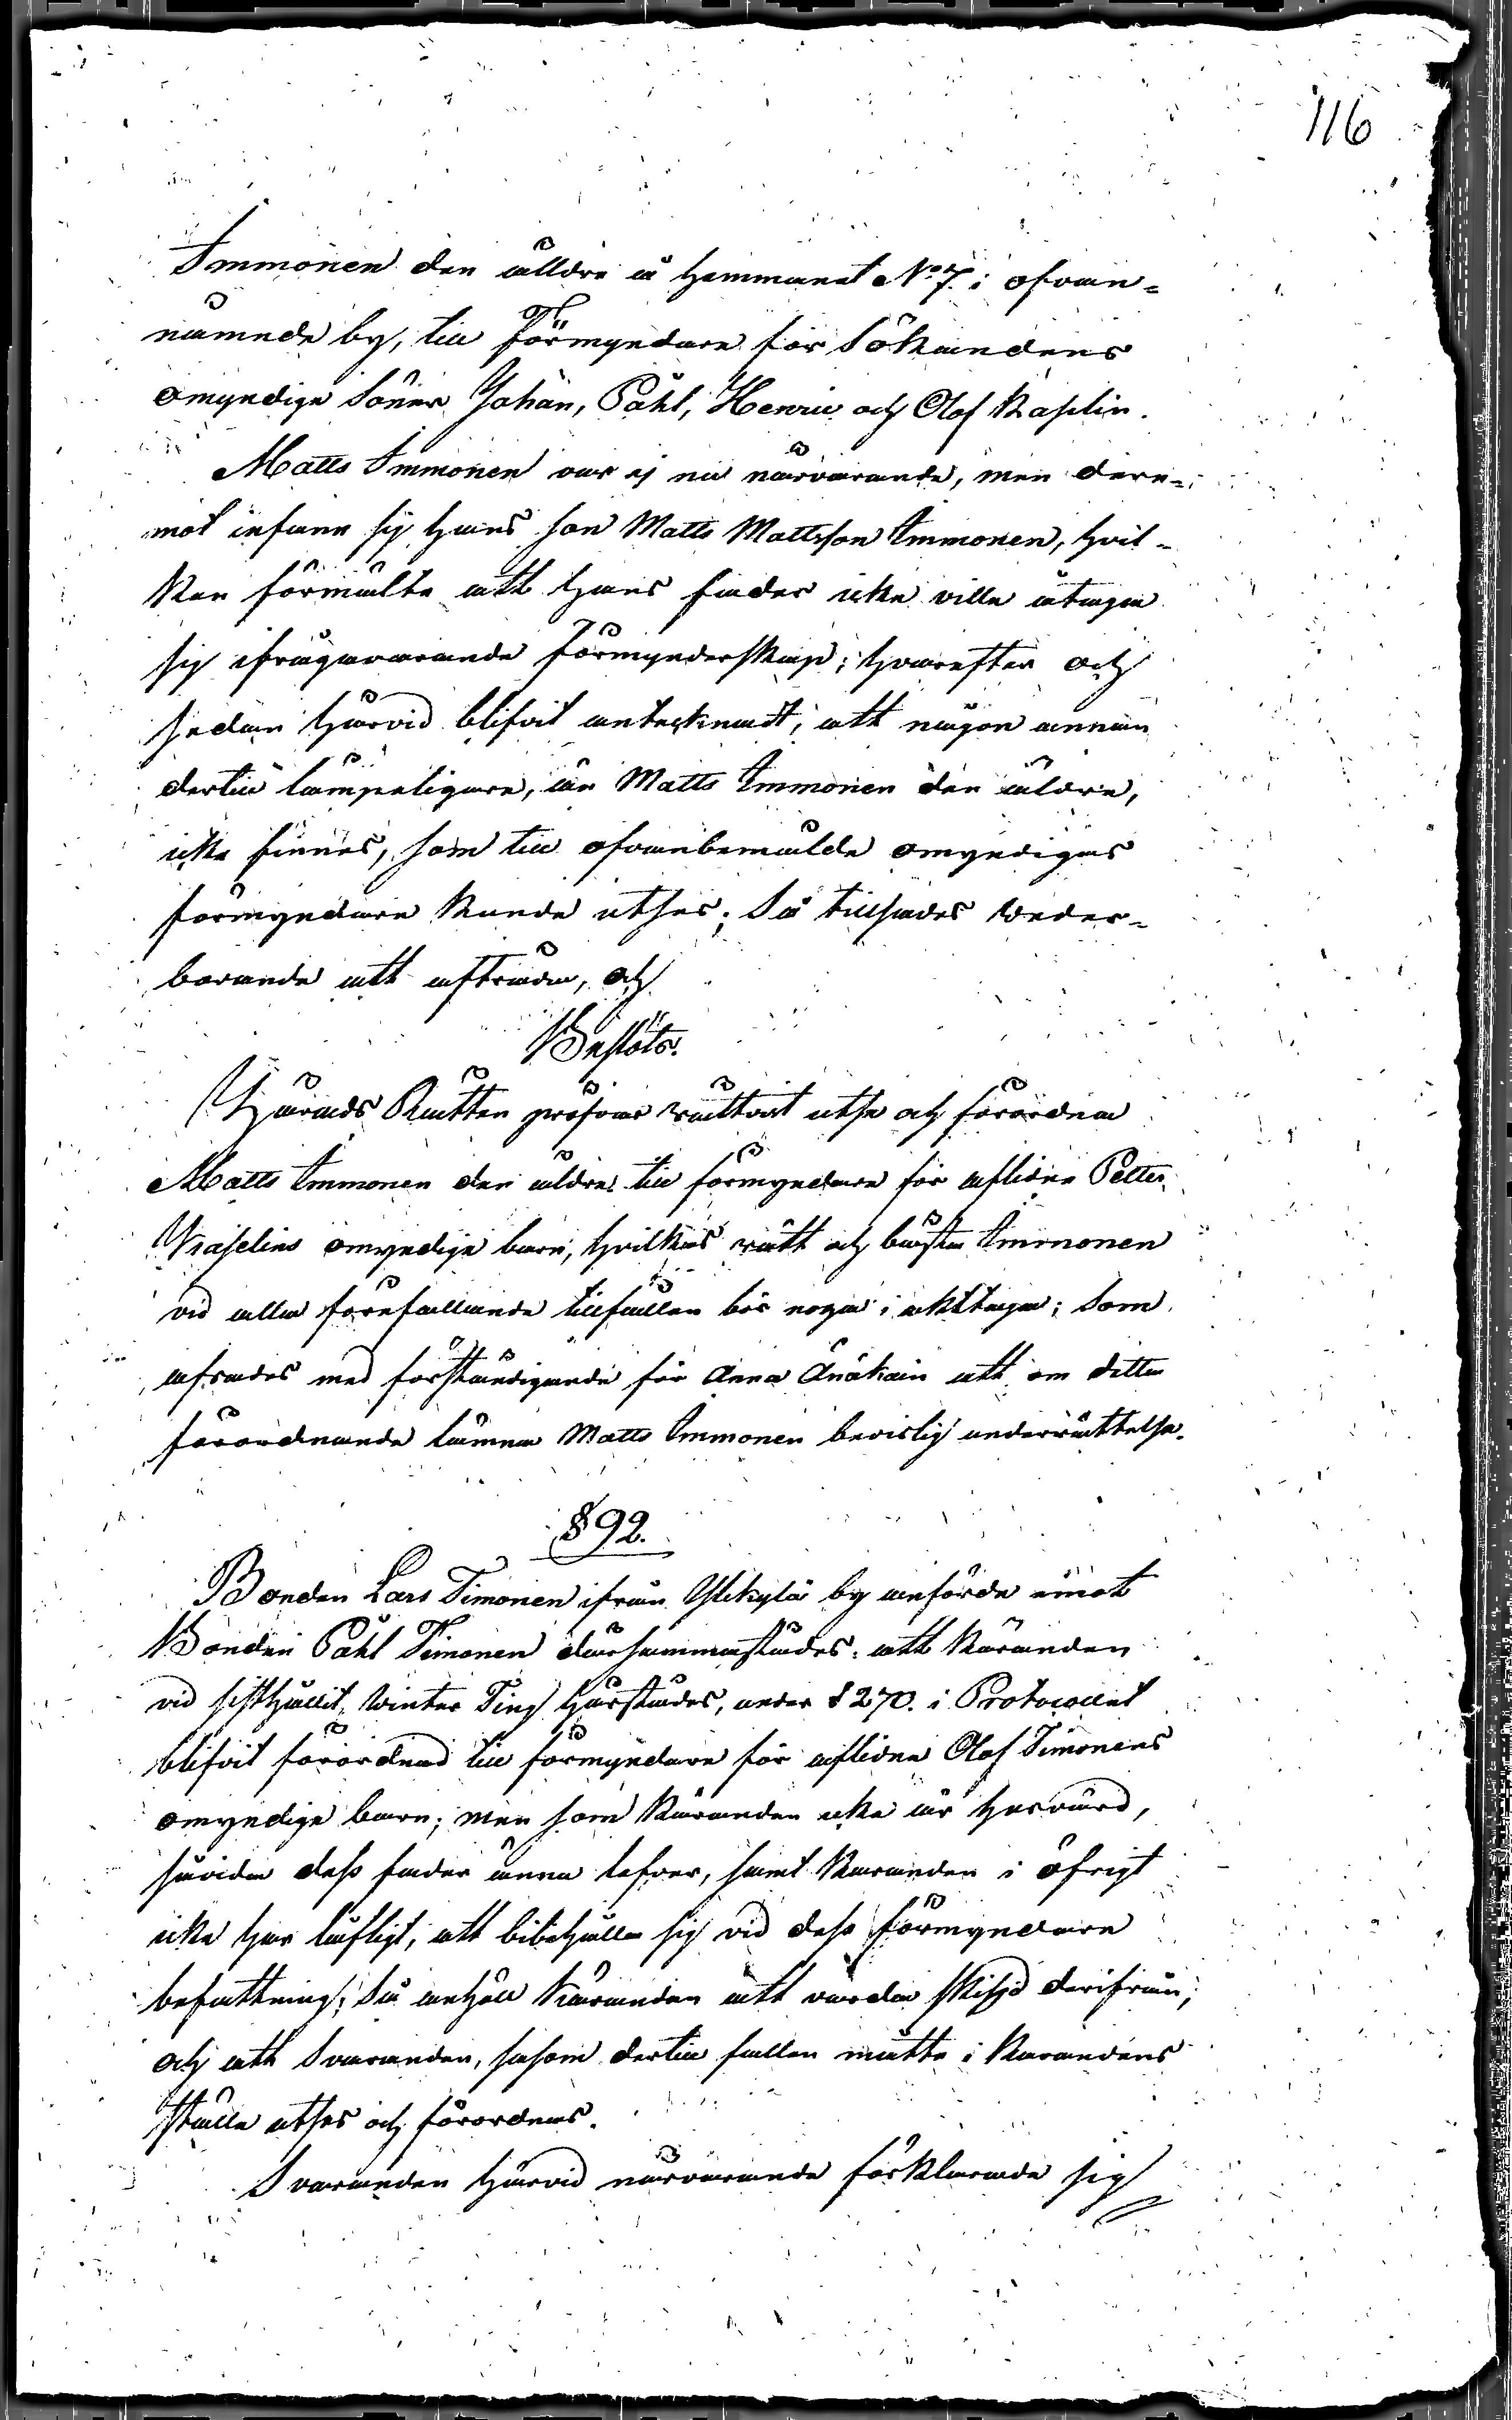 116
Immonen den älldre å Hemmanet No 7. i ofvan-
nämnde by, till Förmyndare för Sökandens
omyndige Söner Johan, Påhl, Henric och Olof Kaselin.
Matts Immonen var ej nu närvarande, men dere-
mot infann sig hans son Matts Mattsson Immonen, hvil-
ken förmälte att hans fader icke ville åtaga
sig ifrågavarande Förmynderskap; hvarefter och
sedan härvid blifvit antecknadt, att någon annan
dertill lämpeligare, än Matts Immonen den äldre,
icke finnes, som till ofvanbemälde omyndigas
förmyndare kunde utses; Så tillsades Veder-
börande att afträda, och
Beslöts.
Härads Rätten pröfvar rättvist utse och förordna
Matts Immonen den äldre till förmyndare för aflidne Petter
Kaselins omyndige barn, hvilkas rätt och bästa Immonen
vid alla förefallande tillfällen bör noga i akttaga; Som
afsades med förständigande för Anna Änäkäin att om detta
förordnande lämna Matts Immonen bevislig underrättelse.
§ 92.
Bonden Lars Timonen ifrån Ylikylä by anförde emot
Bonden Påhl Timonen därsammastädes, att Käranden
vid sisthållit Winter Ting härstädes, under § 270. i Protocollet
blifvit förordnad till förmyndare för aflidne Olof Timonens
omyndige barn; men som Käranden icke är husvärd,
såvida dess fader ännu lefver, samt Käranden i öfrigt
icke har läsligt, att bibehålla sig vid dess förmyndare
befattning; Så anhöll Käranden att varda skiljd derifrån,
och att Svaranden, såsom dertill fallen måtte i Kärandens
ställe utses och förordnas.
Svaranden härvid närvarande förklarade sig